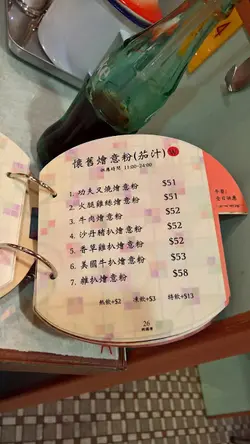 懷舊燴意粉(茄汁)
供應時間 11:00-24:00
1. 功夫叉燒燴意粉 $51
2. 火腿雞絲燴意粉 $51
3. 牛肉燴意粉 $52
4. 沙丹豬扒燴意粉 $52
5. 香草雞扒燴意粉 $52
6. 美國牛扒燴意粉 $53
7. 雜扒燴意粉 $58
熱飲+$2 凍飲+$3 特飲+$13
26